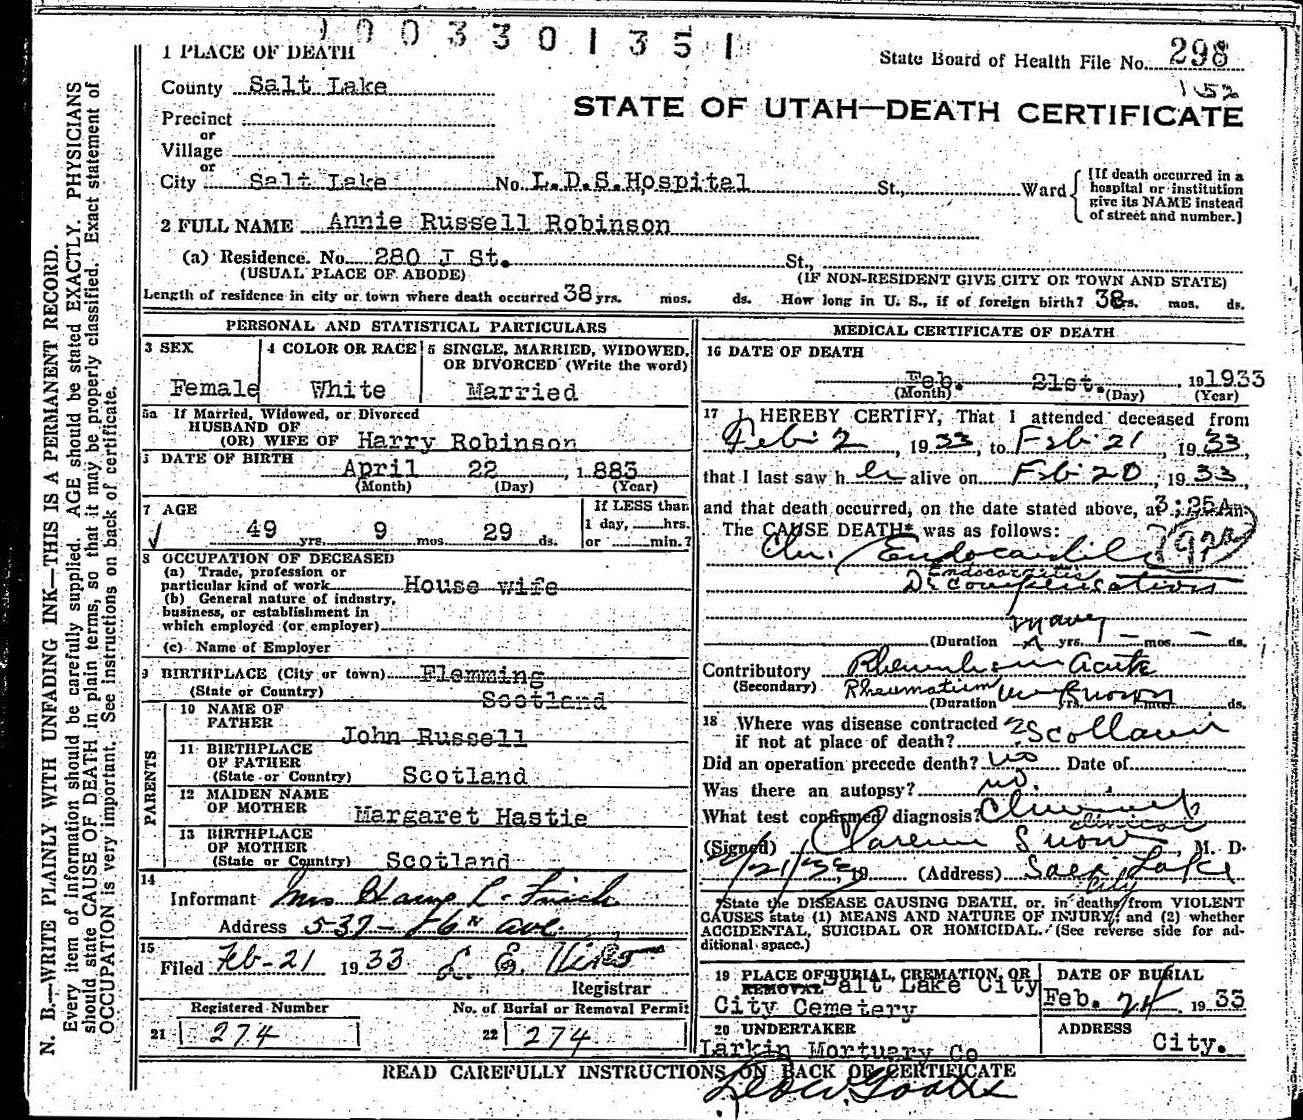 1003301351
1 PLACE OF DEATH
State Board of Health File No. 298
152
County Salt Lake
STATE OF UTAH—DEATH CERTIFICATE
Precinct
or
Village
or
City Salt Lake No. L.D.S. Hospital St., Ward
[If death occurred in a
hospital or institution
give its NAME instead
of street and number.]
2 FULL NAME Annie Russell Robinson
(a) Residence. No. 280 J St. St.,
(USUAL PLACE OF ABODE) (IF NON-RESIDENT GIVE CITY OR TOWN AND STATE)
Length of residence in city or town where death occurred 38 yrs. mos. ds. How long in U. S., if of foreign birth? 38 yrs. mos. ds.
PERSONAL AND STATISTICAL PARTICULARS
3 SEX 4 COLOR OR RACE 5 SINGLE, MARRIED, WIDOWED,
OR DIVORCED (Write the word)
Female White Married
5a If Married, Widowed, or Divorced
HUSBAND OF
(OR) WIFE OF Harry Robinson
DATE OF BIRTH
April 22, 1883
(Month) (Day) (Year)
7 AGE
49 yrs. 9 mos. 29 ds.
If LESS than
1 day, hrs.
or min.?
8 OCCUPATION OF DECEASED
(a) Trade, profession or
particular kind of work House wife
(b) General nature of industry,
business, or establishment in
which employed (or employer)
(c) Name of Employer
9 BIRTHPLACE (City or town) Flemming
(State or Country) Scotland
PARENTS
10 NAME OF
FATHER
John Russell
11 BIRTHPLACE
OF FATHER
(State or Country) Scotland
12 MAIDEN NAME
OF MOTHER Margaret Hastie
13 BIRTHPLACE
OF MOTHER
(State or Country) Scotland
14
Informant Mrs
Address 537 - 6th ave.
15
Filed Feb-21 1933 L. E.
Registrar
Registered Number No. of Burial or Removal Permit
21 274 22 274
MEDICAL CERTIFICATE OF DEATH
16 DATE OF DEATH
Feb. 21st. , 19 1933
(Month) (Day) (Year)
17 I HEREBY CERTIFY, That I attended deceased from
Feb. 2, 1933, to Feb. 21, 1933,
that I last saw her alive on Feb. 20, 1933,
and that death occurred, on the date stated above, at 3:25A m.
The CAUSE DEATH* was as follows:
Chr. Endocarditis
Endocarditis
(Duration many yrs. — mos. — ds.
Contributory Rheumatism acute
(Secondary) Rheumatism
(Duration yrs. mos. ds.
18 Where was disease contracted
if not at place of death? ? Scotland
Did an operation precede death? no Date of
Was there an autopsy? no.
What test confirmed diagnosis? Clinical
clinical
(Signed) Clarence Snow, M. D.
2/21/33 19 (Address) Salt Lake
City
*State the DISEASE CAUSING DEATH, or, in deaths from VIOLENT
CAUSES state (1) MEANS AND NATURE OF INJURY; and (2) whether
ACCIDENTAL, SUICIDAL OR HOMICIDAL. (See reverse side for ad-
ditional space.)
19 PLACE OF BURIAL, CREMATION, OR
REMOVAL Salt Lake City
City Cemetery
DATE OF BURIAL
Feb. 24, 1933
20 UNDERTAKER
Larkin Mortuary Co
ADDRESS
City.
READ CAREFULLY INSTRUCTIONS ON BACK OF CERTIFICATE
N. B.—WRITE PLAINLY WITH UNFADING INK—THIS IS A PERMANENT RECORD.
Every item of information should be carefully supplied. AGE should be stated EXACTLY. PHYSICIANS
should state CAUSE OF DEATH in plain terms, so that it may be properly classified. Exact statement of
OCCUPATION is very important. See instructions on back of certificate.